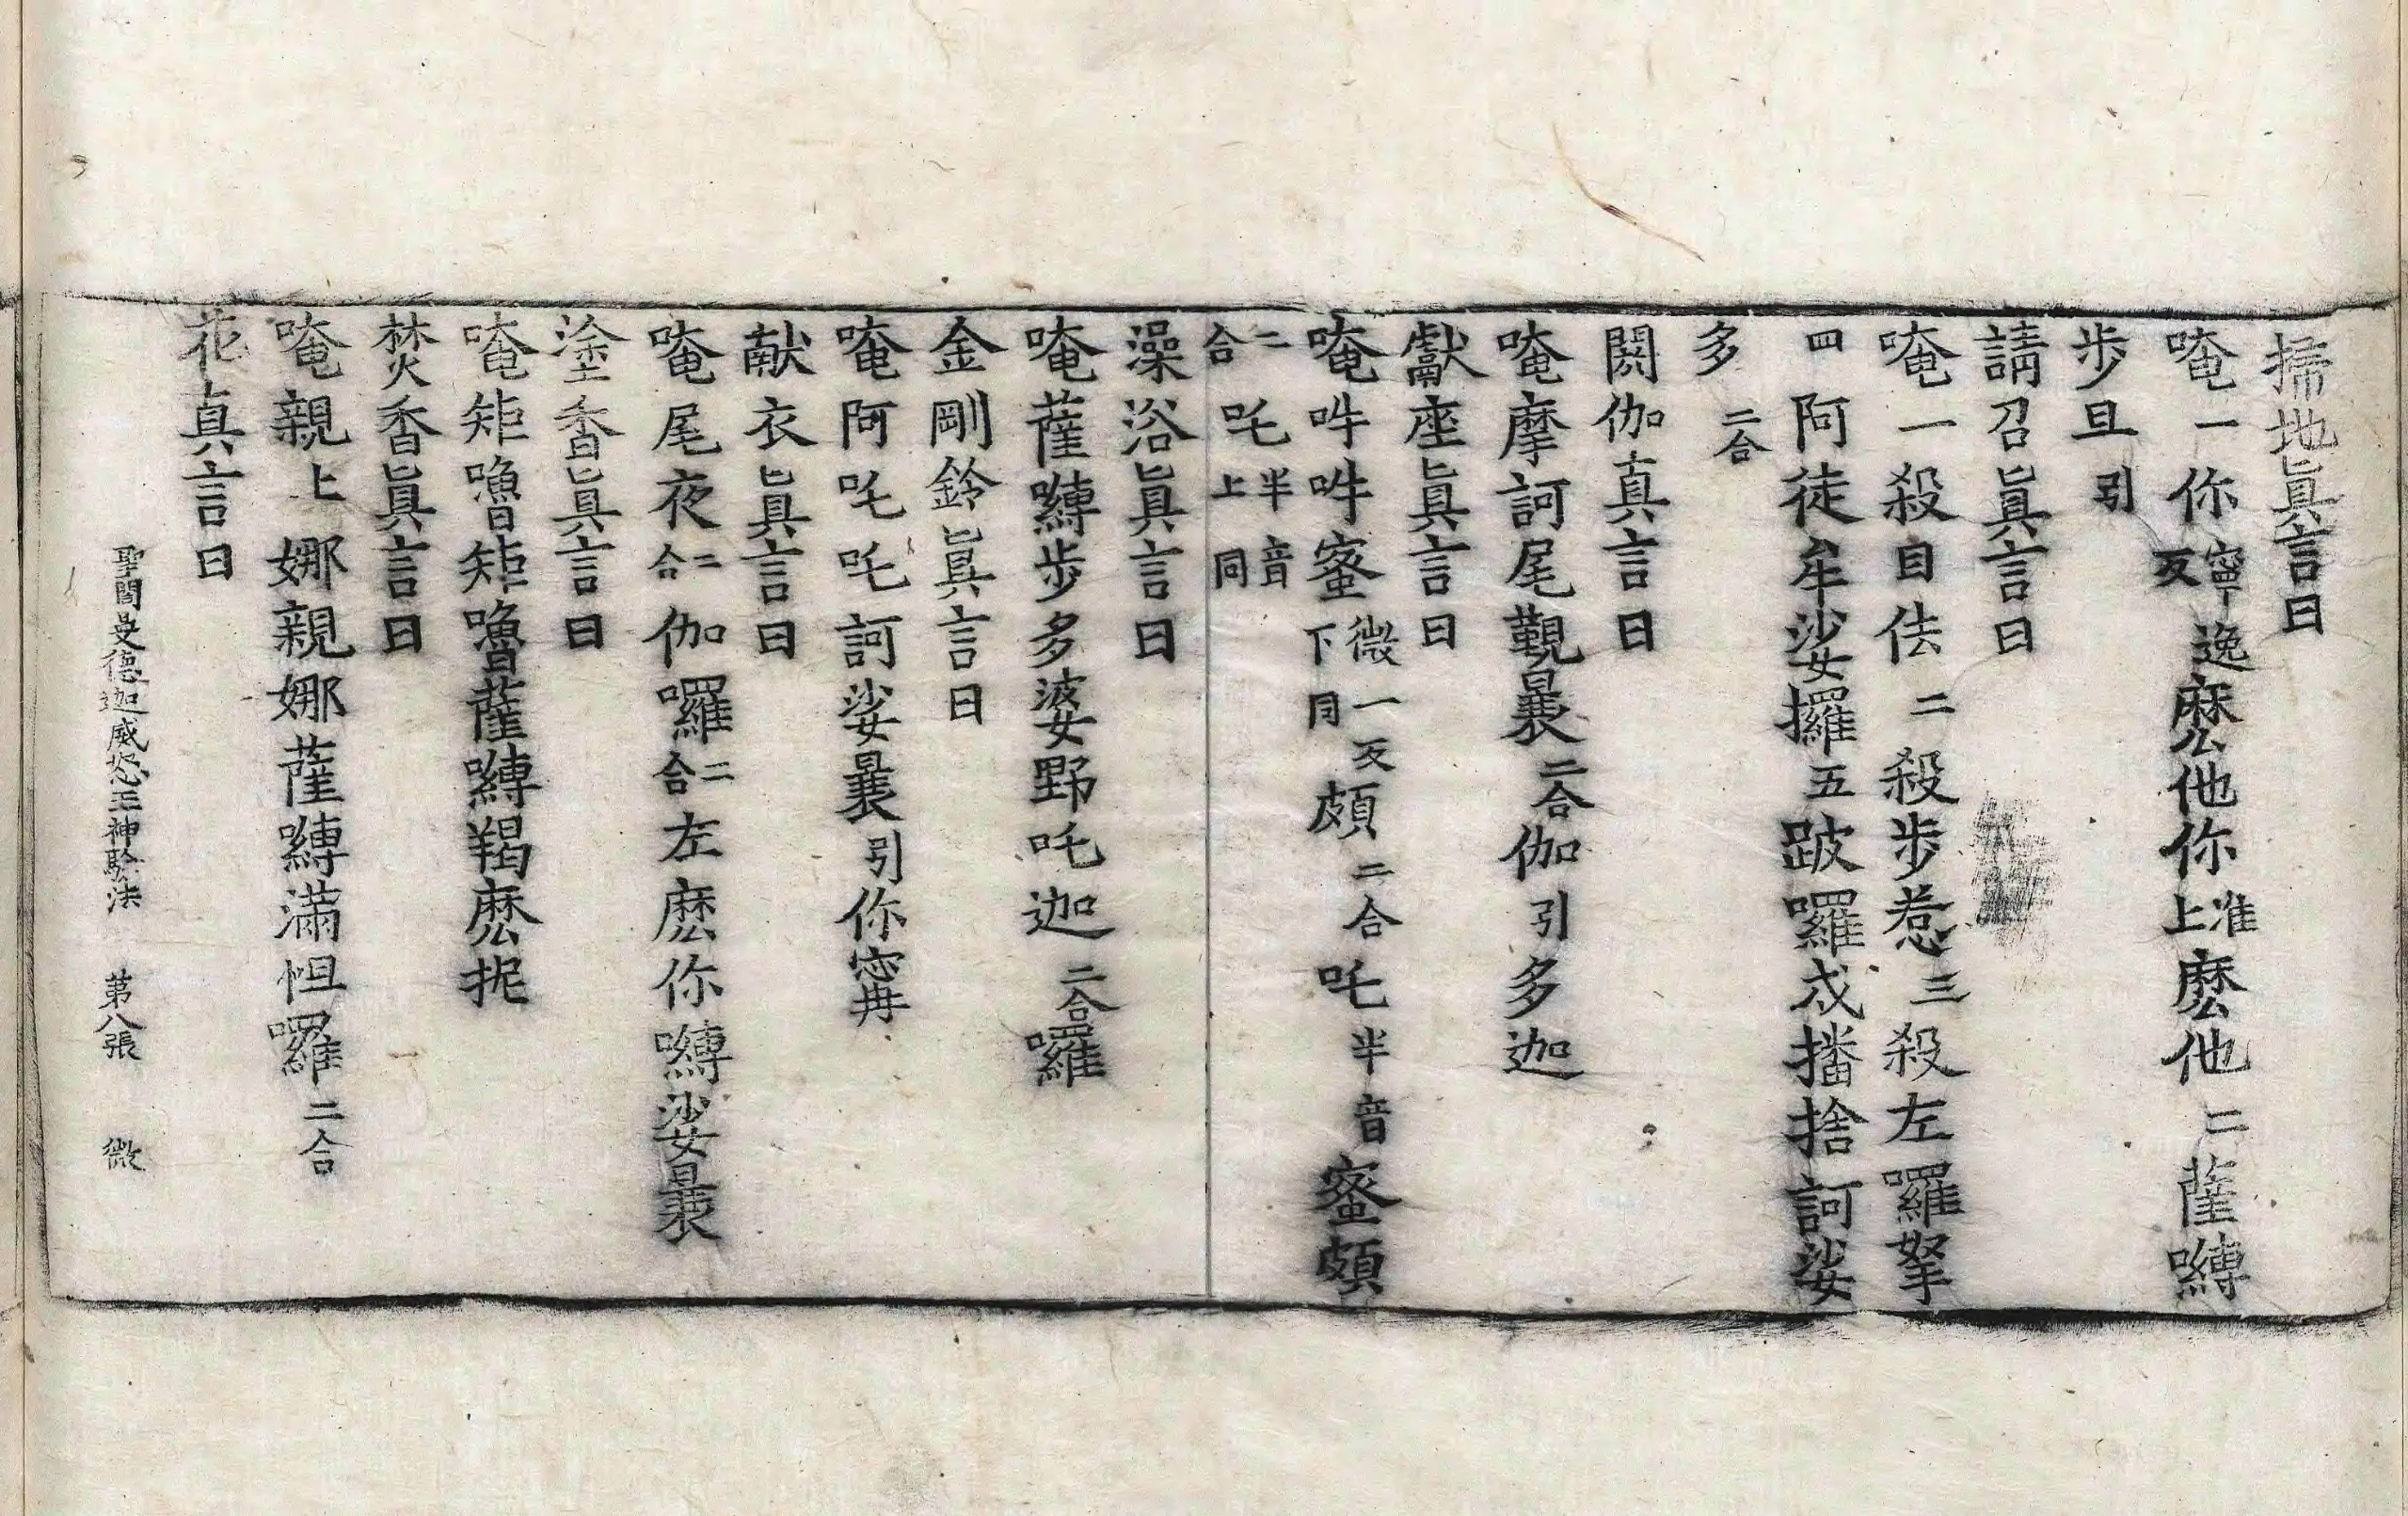 掃地眞言曰
唵一你寧逸反麽他你准上麽他二薩嚩
步旦引
請召眞言曰
唵一殺目佉二殺步惹三殺左囉拏
四阿徒牟娑攞五跛囉戍播捨訶娑
多二合
閼伽真言曰
唵摩訶尾覲曩二合伽引多迦
獻座眞言曰
唵吽吽蜜微一反下同頗二合吒半音蜜頗
二合吒半音上同
澡浴眞言曰
唵薩嚩步多婆野吒迦二合囉
金剛鈴眞言曰
唵阿吒吒訶娑曩引你寗冉
献衣眞言曰
唵尾夜二合伽囉二合左麽你嚩娑曩
塗香眞言曰
唵矩嚕矩嚕薩嚩羯麽抳
焚香眞言曰
唵親上娜親娜薩嚩滿怛囉二合
花真言曰
聖閻曼德迦威怒王神驗法 苐八張 微